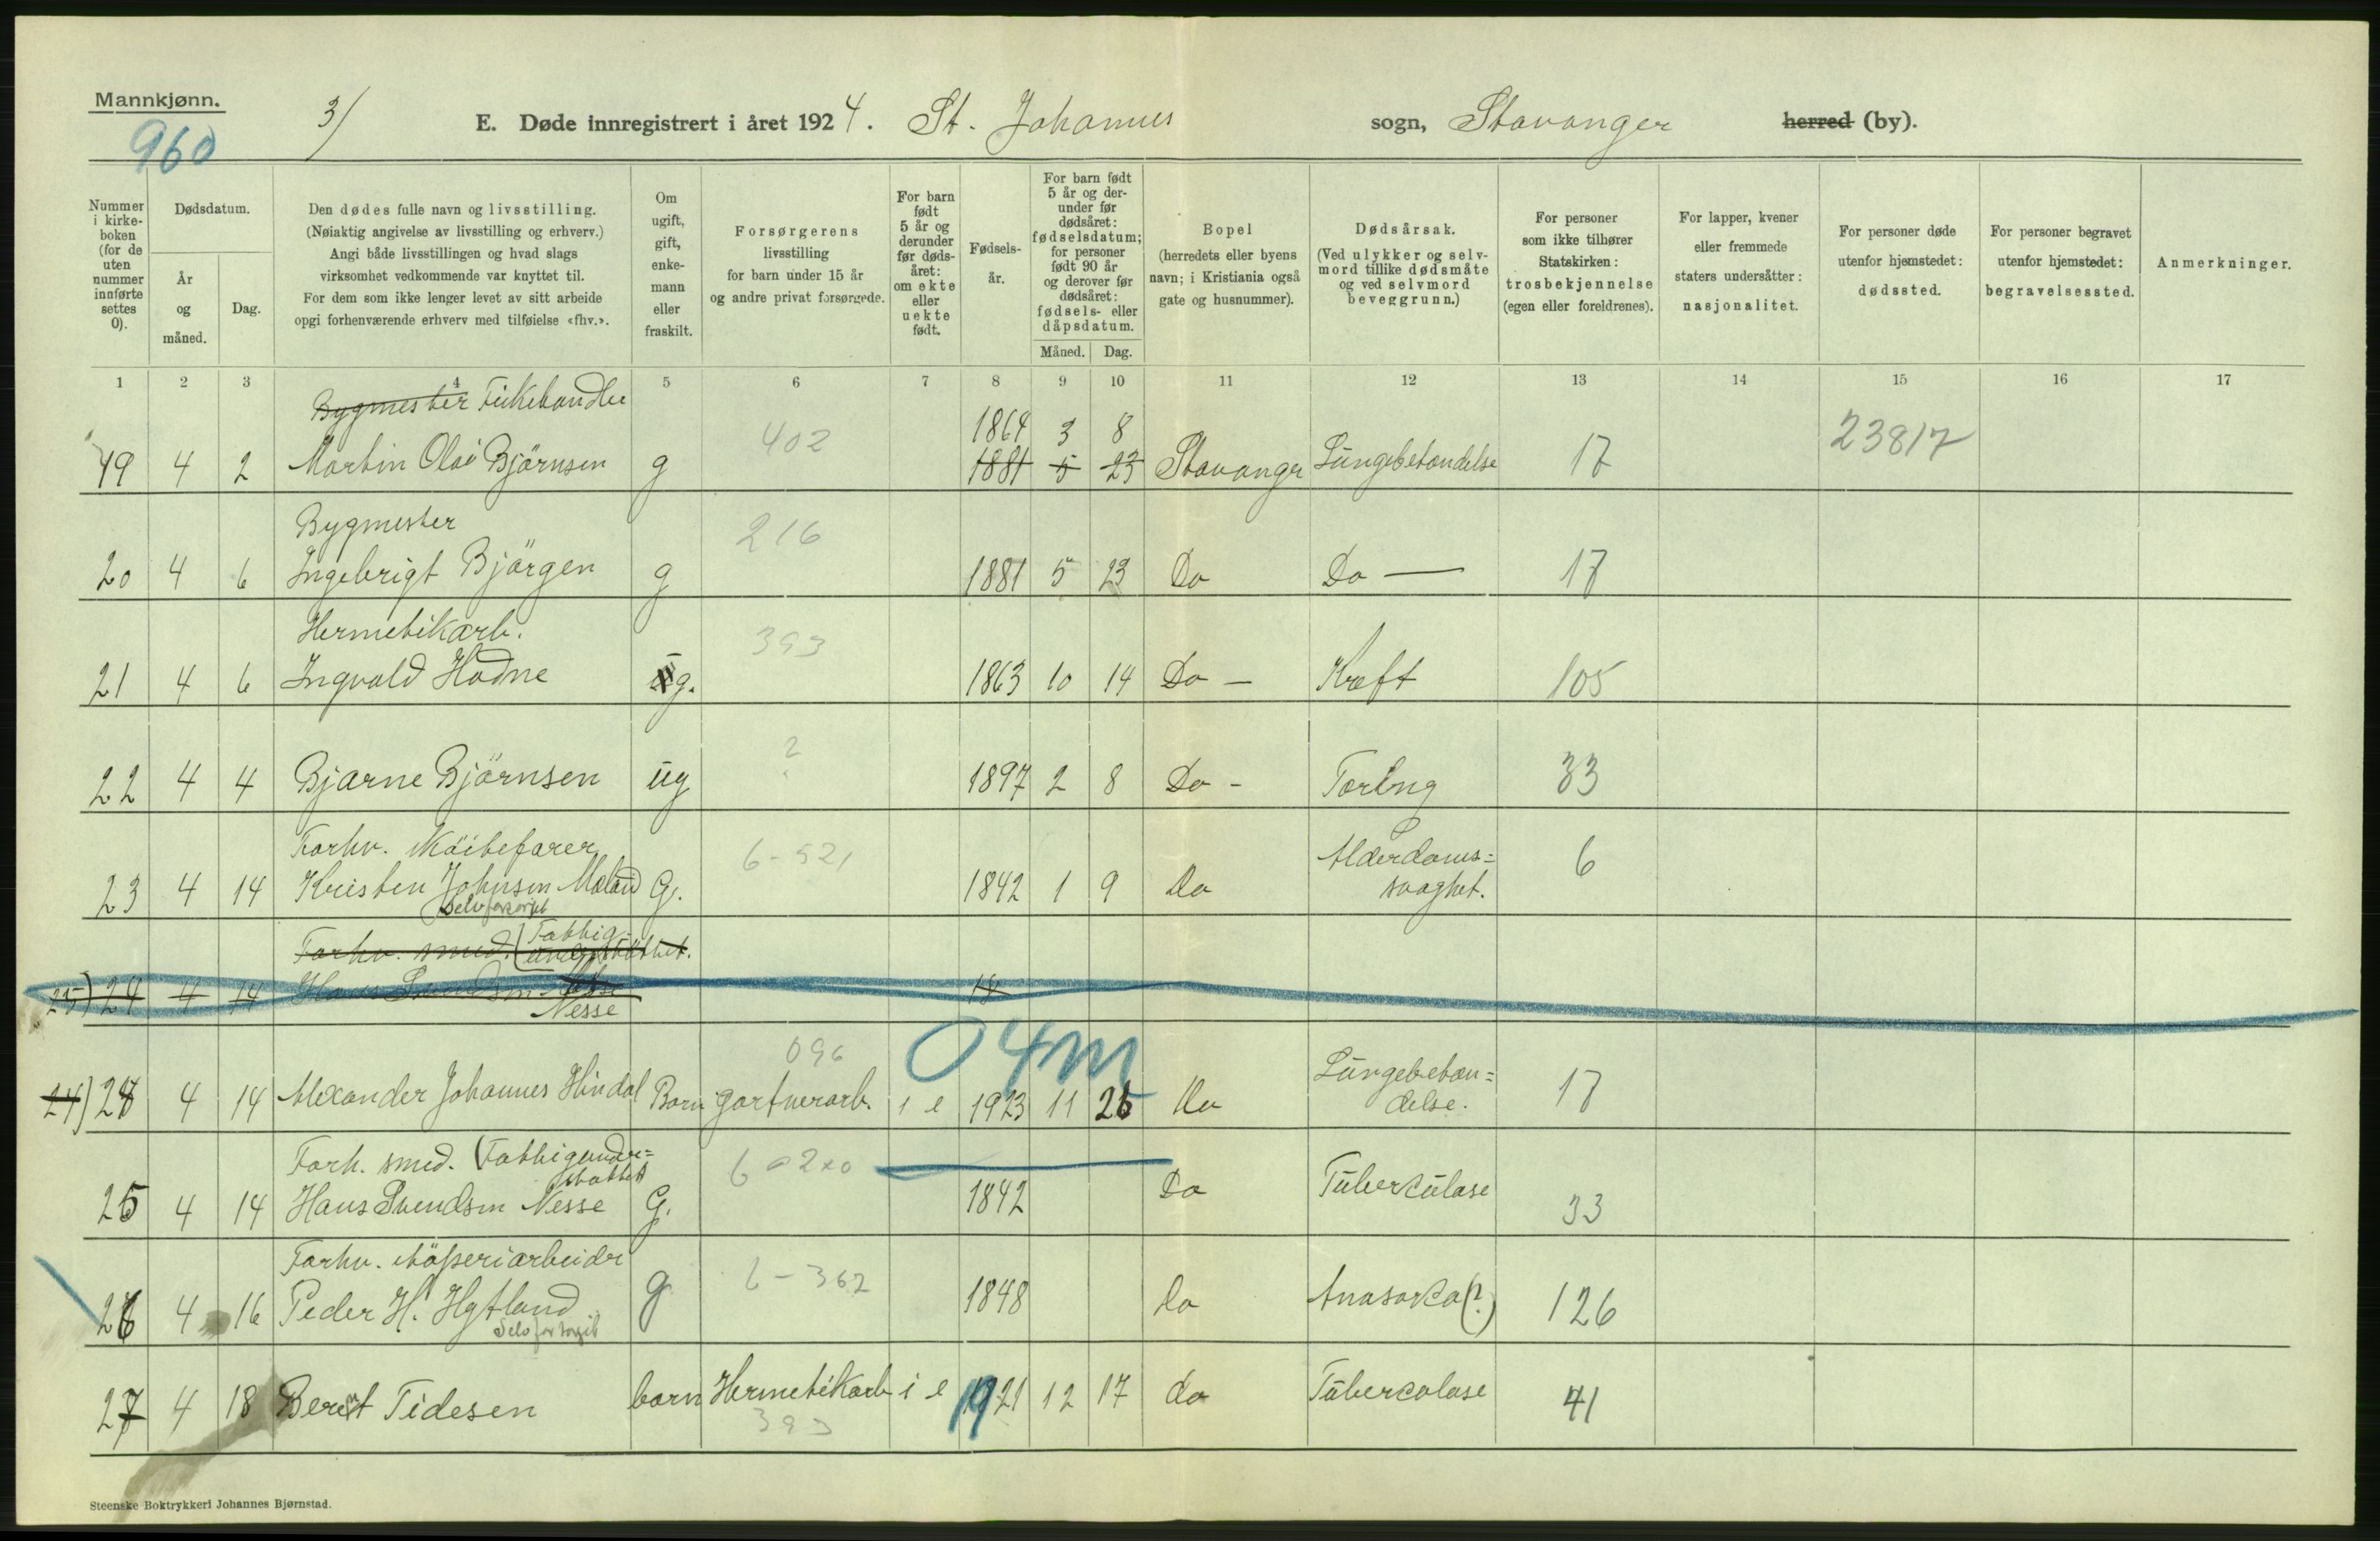 Mannkjønn.
960
3/
E. Døde innregistrert i året 1924. St. Johannes sogn, Stavanger herred (by).
Nummer i kirke-boken (for de uten nummer innførte settes 0).
Dødsdatum.
År og måned.
Dag.
Den dødes fulle navn og livsstilling.
(Nøiaktig angivelse av livsstilling og erhverv.)
Angi både livsstillingen og hvad slags
virksomhet vedkommende var knyttet til.
For dem som ikke lenger levet av sitt arbeide
opgi forhenværende erhverv med tilføielse «fhv.».
Om ugift, gift, enke-mann eller fraskilt.
Forsørgerens
livsstilling
for barn under 15 år
og andre privat forsørgede.
For barn født 5 år og derunder før døds-året: om ekte eller uekte født.
Fødsels-år.
For barn født 5 år og der-under før dødsåret: fødselsdatum; for personer født 90 år og derover før dødsåret: fødsels- eller dåpsdatum.
Måned.
Dag.
Bopel
(herredets eller byens
navn; i Kristiania også
gate og husnummer).
Dødsårsak.
(Ved ulykker og selv-
mord tillike dødsmåte
og ved selvmord
beveggrunn.)
For personer
som ikke tilhører
Statskirken:
trosbekjennelse
(egen eller foreldrenes).
For lapper, kvener
eller fremmede
staters undersåtter:
nasjonalitet.
For personer døde
utenfor hjemstedet:
dødssted.
For personer begravet
utenfor hjemstedet:
begravelsessted.
Anmerkninger.
1 2 3 4 5 6 7 8 9 10 11 12 13 14 15 16 17
Bygmester
402 1864 3 8 23817
19 4 2 Martin Olai Björnsen g 1881 5 23 Stavanger Lungebetændelse 17
Bygmester 216
20 4 6 Ingebrigt Björgen g 1881 5 23 Do Do — 17
Hermetikarb. 393
21 4 6 Ingvald Hodne g. 1863 10 14 Do — Kræft 105
?
22 4 4 Bjarne Björnsen ug 1897 2 8 Do - Tæring 33
Forhv. skøitefører 6-521 Alderdoms= 6
23 4 14 Kristen Johnsen Maland G. 1842 1 9 Do svaghet.
Selvforsørget
Forhv. smed. (Fattig-
understøttet.
25) 24 4 14 Hans Svendsen Nesse 18
Nesse
096 04m Lungebetæn=
24) 24 4 14 Alexander Johannes Hindal Barn gartnerarb. i e 1923 11 25 Do delse. 17
Forh. smed. (Fattigunder=
støttet 6
25 4 14 Hans Svendsen Nesse G. 1842 Do Tuberculose 33
Forhv. støperiarbeider 6-362
26 4 16 Peder H. g 1848 Do Anasarca(?) 126
Selvforsørget
27 4 18 Berent Tidesen barn Hermetikarb i e 1921 12 17 do Tuberculose 41
393
Steenske Boktrykkeri Johannes Bjørnstad.